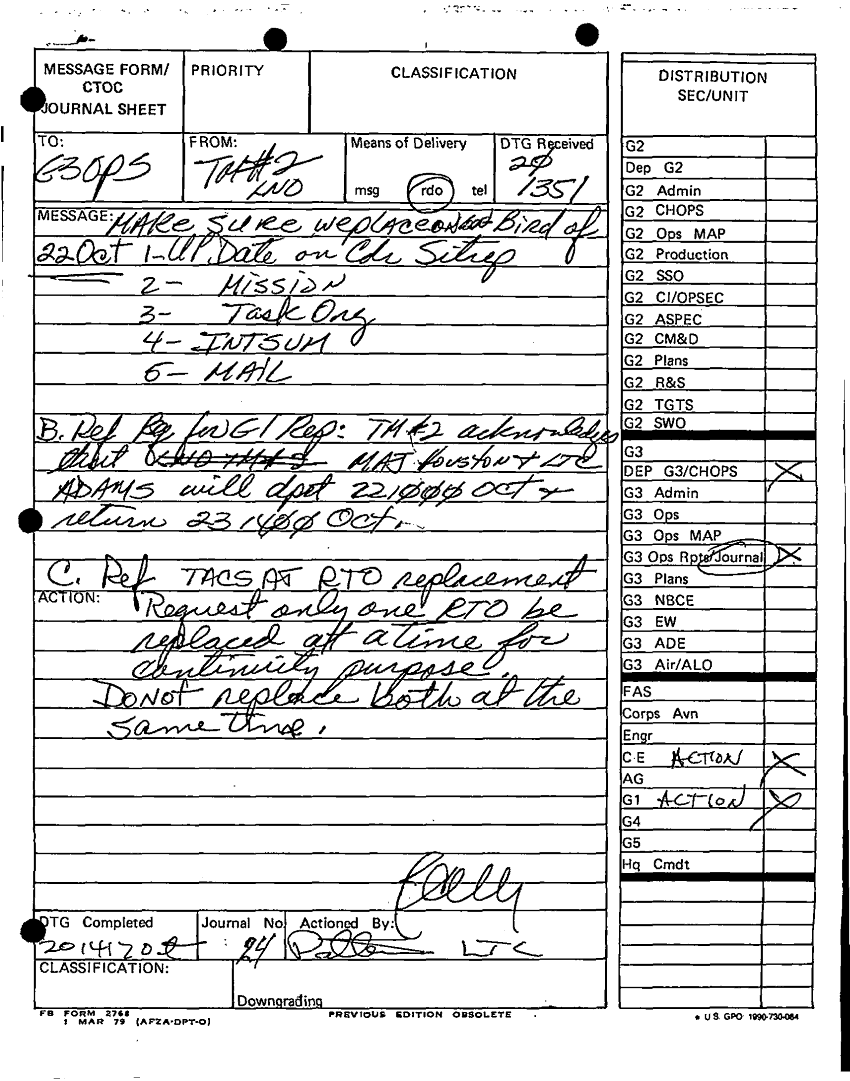 MESSAGE FORM/
CTOC
JOURNAL SHEET
PRIORITY
CLASSIFICATION
TO:
G3OPS
FROM:
TM#2
LNO
Means of Delivery
msg rdo tel
DTG Received
20
1351
MESSAGE: MAKE SURE we place on Bird of
22 Oct 1-UP Date on Cdr Sitrep
2- MISSION
3- Task Org
4- INTSUM
5- MAIL
B. Ref Rq for G1 Rep: TM#2 acknowledges
that MAJ Houston & LTC
ADAMS will dpt 221000 OCT &
return 231400 Oct.
C. Ref TACSAT RTO replacement
ACTION: Request only one RTO be
replaced at a time for
continuity purpose.
DO NOT replace both at the
same time.
DTG Completed
201417Oct
Journal No
24
Actioned By:
LTC
CLASSIFICATION:
Downgrading
FB FORM 2768
1 MAR 79 (AFZA-DPT-O)
PREVIOUS EDITION OBSOLETE
DISTRIBUTION
SEC/UNIT
G2
Dep G2
G2 Admin
G2 CHOPS
G2 Ops MAP
G2 Production
G2 SSO
G2 CI/OPSEC
G2 ASPEC
G2 CM&D
G2 Plans
G2 R&S
G2 TGTS
G2 SWO
G3
DEP G3/CHOPS X
G3 Admin
G3 Ops
G3 Ops MAP
G3 Ops Rpts/Journal X
G3 Plans
G3 NBCE
G3 EW
G3 ADE
G3 Air/ALO
FAS
Corps Avn
Engr
C-E ACTION X
AG
G1 ACTION X
G4
G5
Hq Cmdt
* U.S. GPO: 1990-730-084